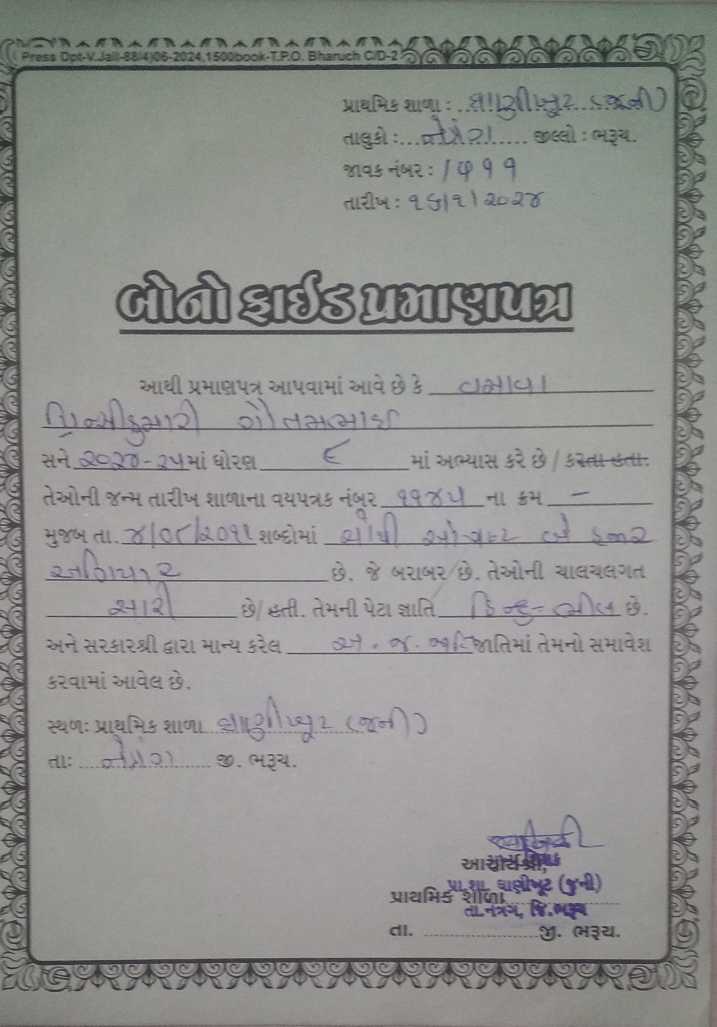 Press Dpt-V.Jail-88(4)06-2024,1500book-T.P.O. Bharuch C/D-2
પ્રાથમિક શાળા : ઘાણીખુટ (જુની)
તાલુકો : નેત્રંગ જીલ્લો : ભરૂચ.
જાવક નંબર :
તારીખ : ૧૬/૧/૨૦૨૪
બોનો ફાઈડ પ્રમાણપત્ર
આથી પ્રમાણપત્ર આપવામાં આવે છે કે વસાવા
ગૌતમભાઈ
સને ૨૦૨૪-૨૫માં ધોરણ ૬ માં અભ્યાસ કરે છે / કરતા હતા.
તેઓની જન્મ તારીખ શાળાના વયપત્રક નંબર ૧૧૪૫ ના ક્રમ –
મુજબ તા. ૪/૦૮/૨૦૧૧ શબ્દોમાં ચોથી ઓગષ્ટ બે હજાર
અગિયાર છે. જે બરાબર છે. તેઓની ચાલચલગત
સારી છે/ હતી. તેમની પેટા જ્ઞાતિ હિન્દુ-ભીલ છે.
અને સરકારશ્રી દ્વારા માન્ય કરેલ અ. જ. જાતિમાં તેમનો સમાવેશ
કરવામાં આવેલ છે.
સ્થળઃ પ્રાથમિક શાળા ઘાણીખુટ (જુની)
તાઃ નેત્રંગ જી. ભરૂચ.
આચાર્યશ્રી,
પ્રા.શા. ઘાણીખૂટ (જુની)
પ્રાથમિક શાળા
તા.નેત્રંગ, જિ.ભરૂચ
તા. જી. ભરૂચ.